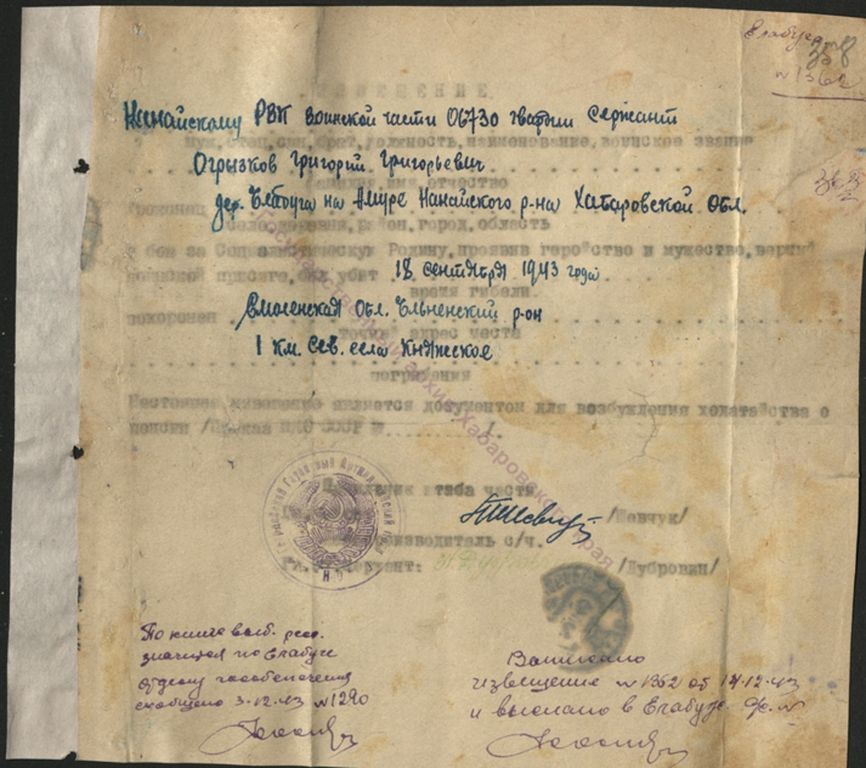 Елабуга
358
№ 1362
ИЗВЕЩЕНИЕ
Нанайскому РВК воинской части 06730 гвардии сержант
муж, отец, сын, брат, должность, наименование, воинское звание
Огрызков Григорий Григорьевич
фамилия, имя, отчество
дер. Елабуга на Амуре Нанайского р-на Хабаровской Обл.
Уроженец
село, деревня, район, город, область
в бою за Социалистическую Родину, проявив геройство и мужество, верный
воинской присяге, был убит 18 сентября 1943 года.
время гибели.
Смоленская Обл. Ельненский р-он
похоронен
точный адрес места
1 км. Сев. села Княжеское
погребения
Настоящее извещение является документом для возбуждения ходатайства о
пенсии /Приказ НКО СССР № ........ /.
Государственный архив Хабаровского края
Начальник штаба части
/Шевчук/
Делопроизводитель с/ч.
сержант: /Дубровин/
По книге
значится по Елабуге
отделу гособеспечения
сообщено 3.12.43 № 1290
Выписано
извещение № 1362 от 14.12.43
и выслано в Елабугу.